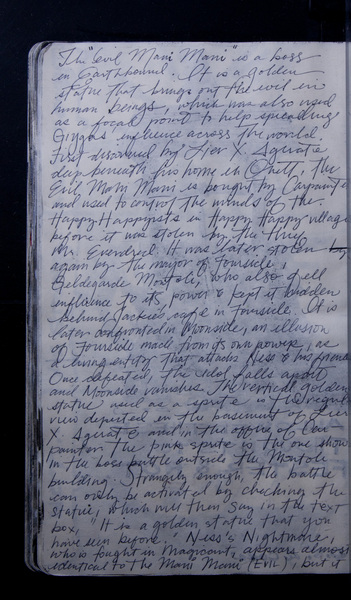 The "evil Mani Mani" is a boss
in Earthbound. It is a golden
statue that brings out the evil in
human beings, which was also used
as a focal point to help spreading
Giygas' influence across the world.
First discovered by Lier X. Agerate
deep beneath his home in Onett, the
Evil Mani Mani is bought by Carpainter
and used to control the minds of the
Happy Happyists in Happy Happy village
before it was stolen by the thief
Mr. Everdred. It was later stolen
again by the mayor of Fourside,
Geldegarde Monotoli, who also fell
influence to its power & kept it hidden
behind Jackie's cafe in Fourside. It is
later confronted in Moonside, an illusion
of Fourside made from its own power, as
a living entity that attacks Ness & his friends
Once defeated, the idol falls apart
and Moonside vanishes. The vertical golden
statue used as a sprite is the regular
view depicted in the basement of Lier
X. Agerate and in the office of Car-
painter the pink sprite is the one shown
in the boss battle outside the Monotoli
building. Strangely enough, the battle
can only be activated by checking the
statue, which will then say in the text
box, "It is a golden statue that you
have seen before." Ness's Nightmare,
who is fought in Magicant, appears almost
identical to the Mani Mani (EVIL), but it